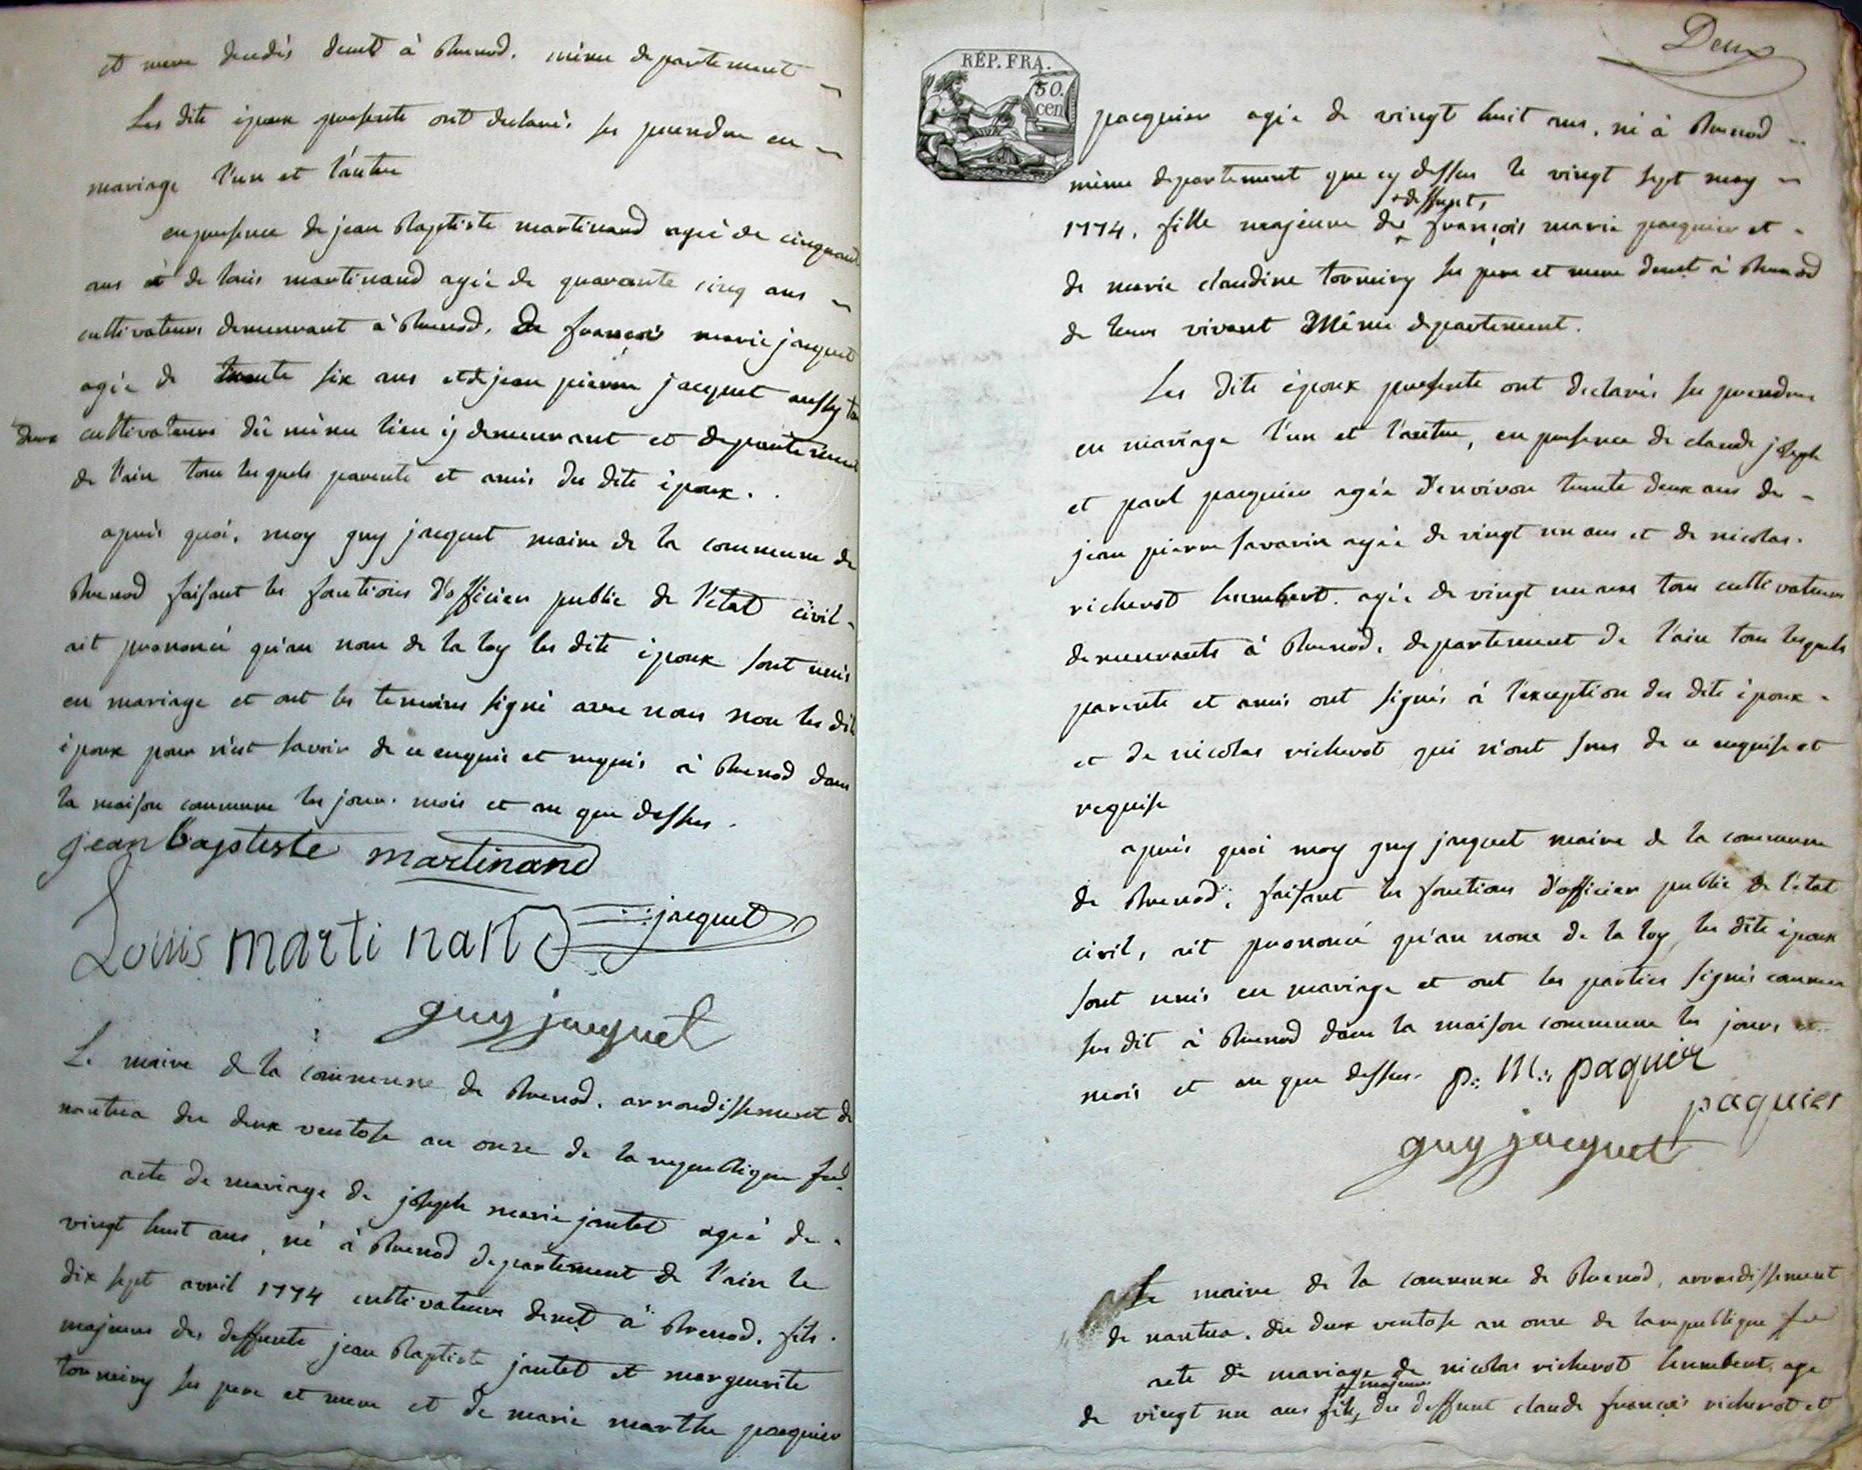 et mere decedés demt à Brenod. même departement
Les dits époux presents ont declarés se prendre en
mariage l'un et l'autre
en presence de jean Baptiste martinand agé de cinquante
ans et de louis martinand agé de quarante cinq ans
cultivateurs demeurant à Brenod. De françois marie jacquet
agé de trente six ans et de jean pierre jacquet aussy
deux cultivateurs du même lieu y demeurant et departement
de l'ain tous lesquels parents et amis des dits époux.
après quoi, moy guy jacquet maire de la commune de
Brenod faisant les fonctions d'officier public de l'état civil
ait prononcé qu'au nom de la loy les dits époux sont unis
en mariage et ont les temoins signé avec nous non les dits
époux pour n'est savoir de ce enquis et requis à Brenod dans
la maison commune les jour. mois et an que dessus.
jean baptiste martinand
Louis martinand jacquet
guy jacquet
Le maire de la commune de Brenod, arrondissement de
nantua du deux ventose an onze de la republique
acte de mariage de joseph marie jantet agé de
vingt huit ans, né à Brenod departement de l'ain le
dix sept avril 1774 cultivateur demt à Brenod. fils
majeur des deffunts jean Baptiste jantet et marguerite
torneiry ses pere et mere et de marie marthe pacquier
Deux
RÉP. FRA.
50.
cen
pacquier agée de vingt huit ans, né à Brenod
même departement que cy dessus le vingt sept may
+ deffunts
1774, fille majeure de françois marie pacquier et
de marie claudine torneiry ses pere et mere demt à Brenod
de leurs vivant Même departement.
Les dits époux presents ont declarés se prendre
en mariage l'un et l'autre, en presence de claude joseph
et paul pacquier agée d'environ trente deux ans de
jean pierre savarin agée de vingt un ans et de nicolas
richerot humbert. agée de vingt un ans tous cultivateurs
demeurants à Brenod, departement de l'ain tous lesquels
parents et amis ont signés à l'exception des dits époux
et de nicolas richerot qui n'ont sus de ce enquise et
requise
après quoi moy guy jacquet maire de la commune
de Brenod, faisant les fonctions d'officier public de l'état
civil, ait prononcé qu'au nom de la loy les dits époux
sont unis en mariage et ont les parties signés comme
sus dit à Brenod dans la maison commune les jours et
mois et an que dessus. p: M: paquier
paquier
guy jacquet
Le maire de la commune de Brenod, arrondissement
de nantua, du deux ventose an onze de la republique
acte de mariage de nicolas richerot humbert, age
majeur
de vingt un ans fils du deffunt claude françois richerot et